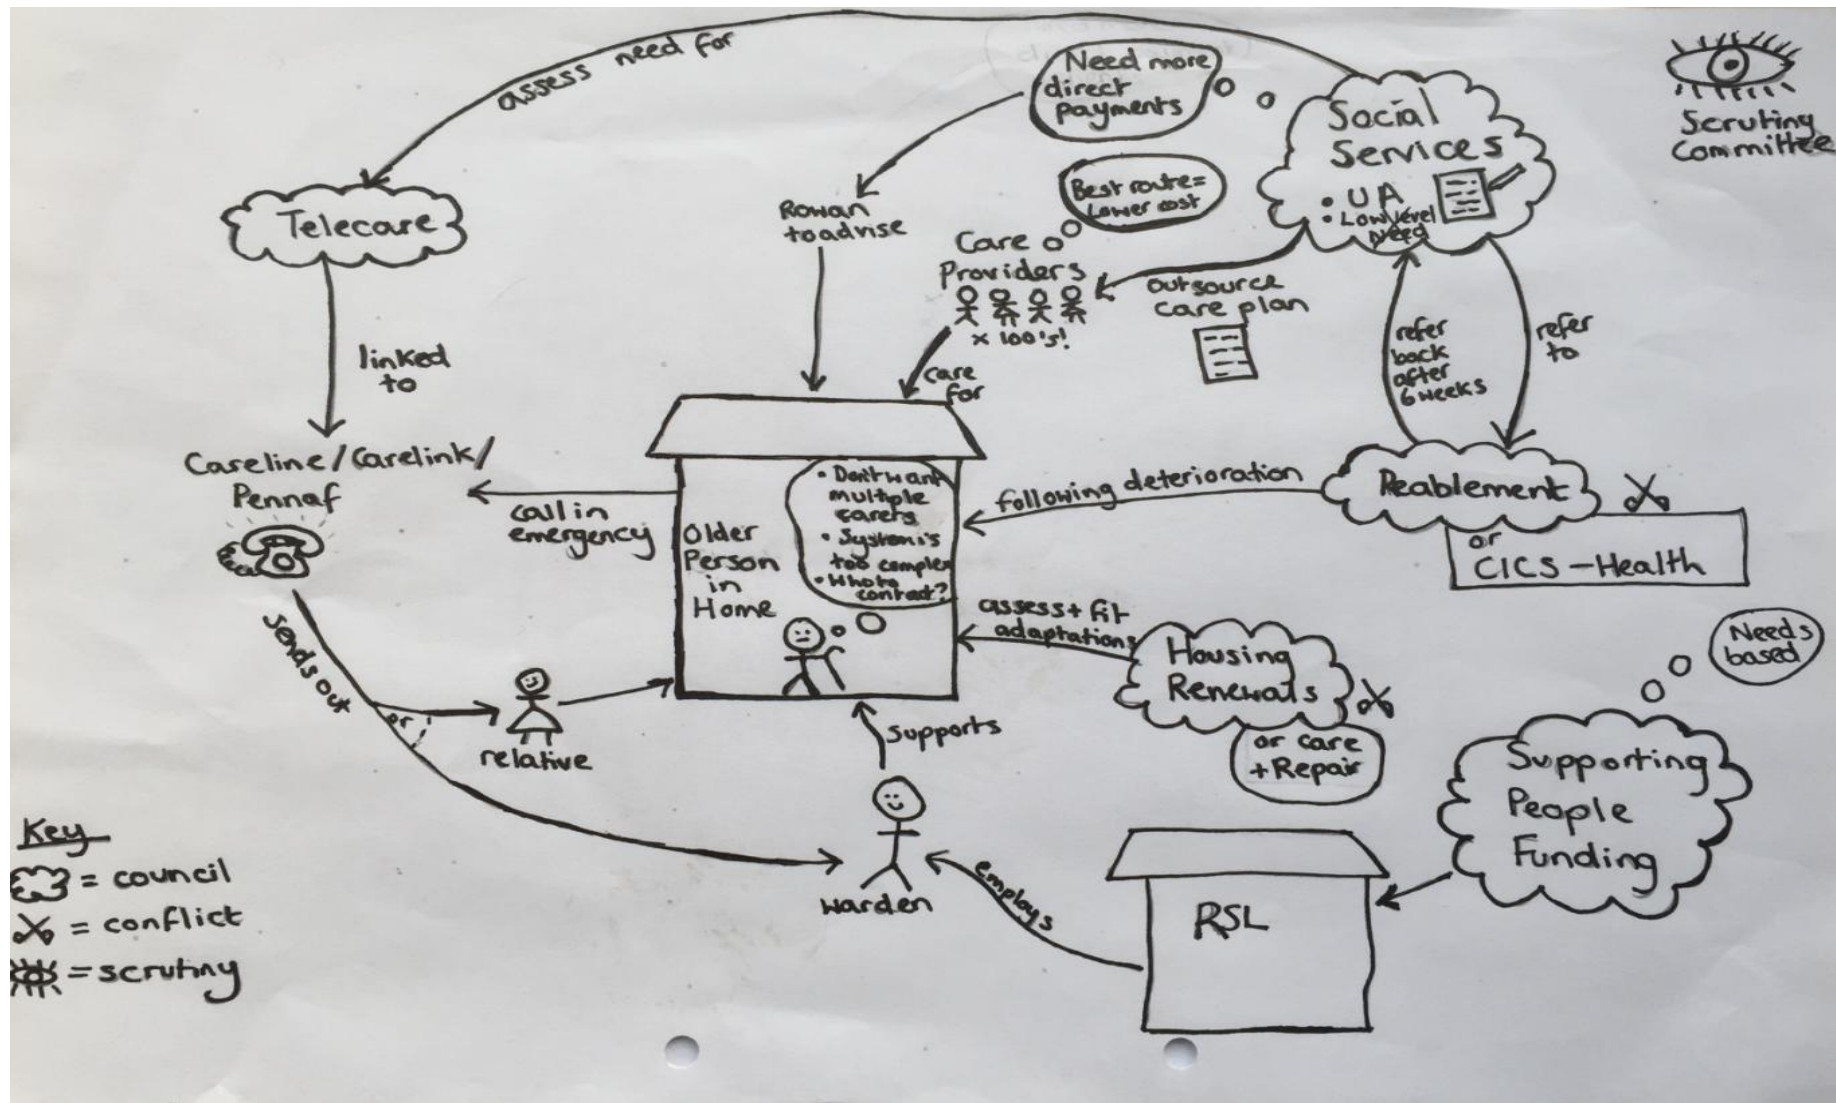 assess need for
Need more
direct
payments
Social
Services
• UA
• Low level
Need
Scrutiny
Committee
Telecare
Rowan
to advise
Best route =
Lower cost
Care
Providers
x 100's!
outsource
care plan
care
for
refer
back
after
6 weeks
refer
to
linked
to
Careline/Carelink/
Pennaf
call in
emergency
Older
Person
in
Home
• Don't want
multiple
carers
• System is
too complex
• Who to
contact?
following deterioration
Reablement
or
CICS - Health
assess + fit
adaptations
Housing
Renewals
or care
+ Repair
Needs
based
Supporting
People
Funding
sends out
or
relative
supports
warden
employs
RSL
Key
= council
= conflict
= scrutiny